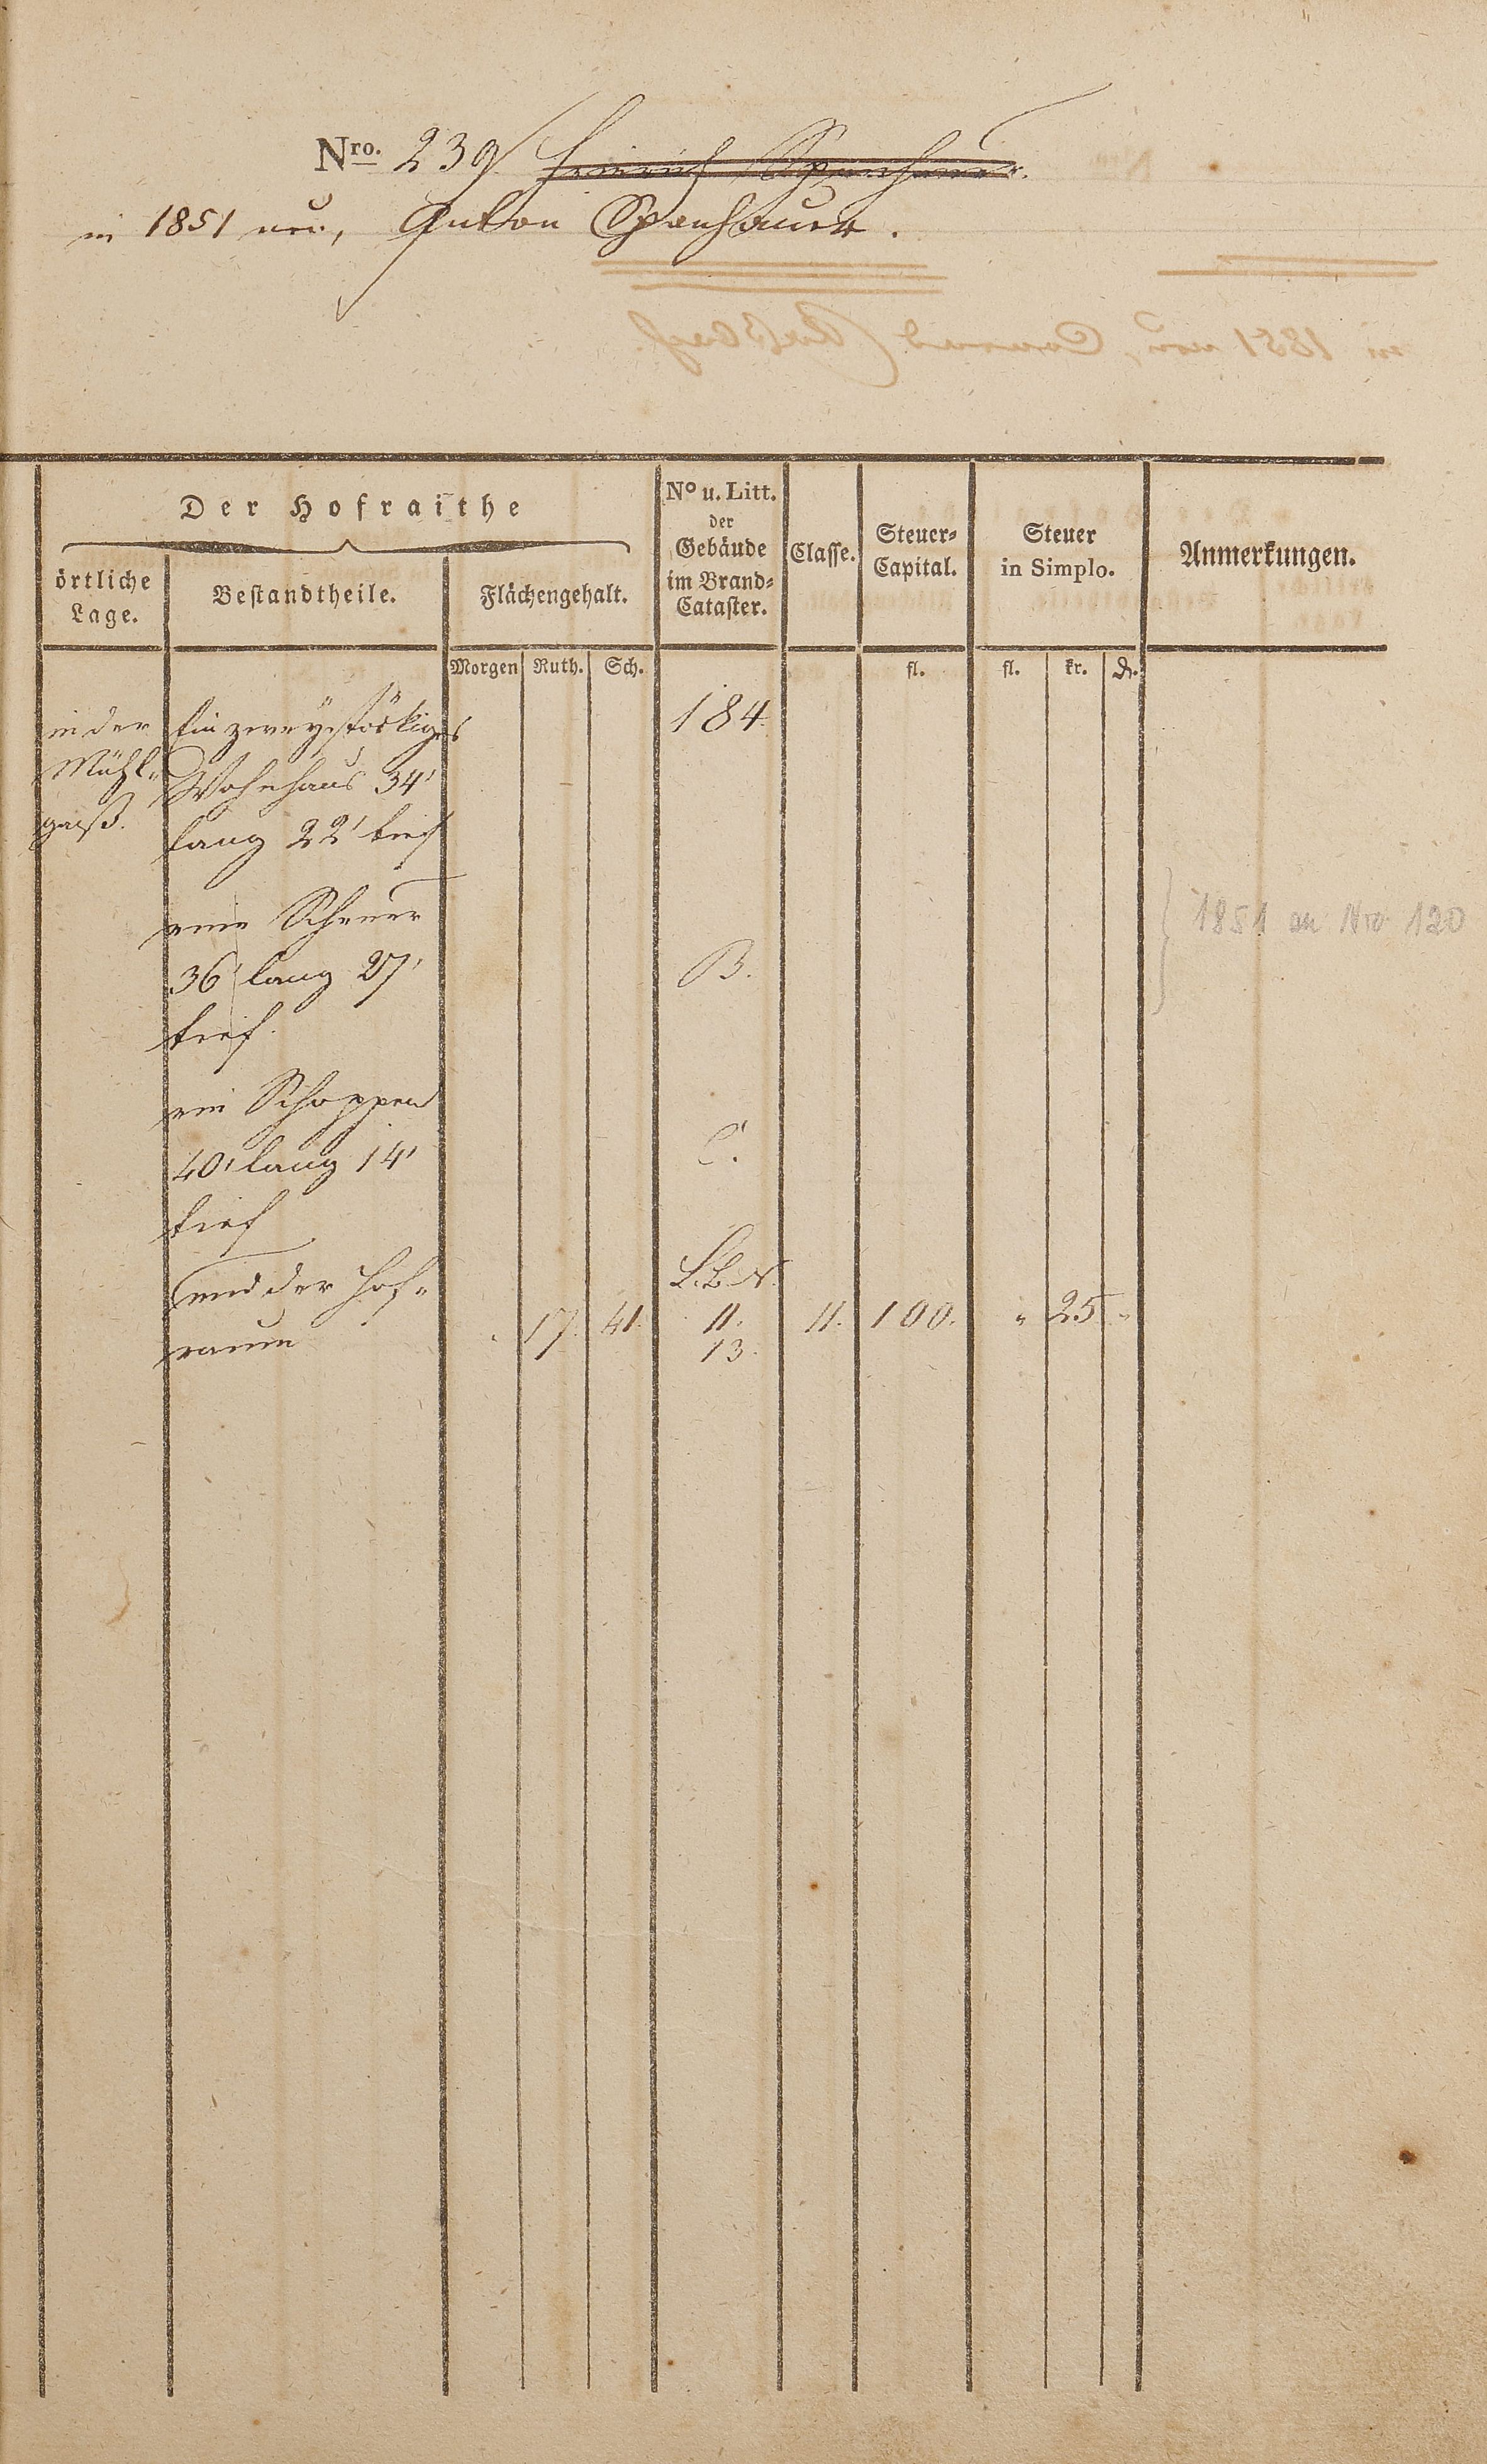 Nro. 239 Heinrich Spanhauer.
in 1851 neu, Anton Spanhauer.
Der Hofraithe
örtliche
Lage.
Bestandtheile.
Flächengehalt.
No u. Litt.
der
Gebäude
im Brand-
Cataster.
Classe.
Steuer-
Capital.
Steuer
in Simplo.
Anmerkungen.
Morgen Ruth. Sch. fl. fl. kr. d.
in der Ein zweystöckiges 184.
Mühl- Wohnhaus 34'
gaß. lang 22' tief
eine Scheuer
36' lang 27' B.
tief.
ein Schoppen
40' lang 14' C.
tief
und der Hof- L.B.N.
raum 17. 41. 11. 11. 100. " 25 "
13.
1851 an Nro 120